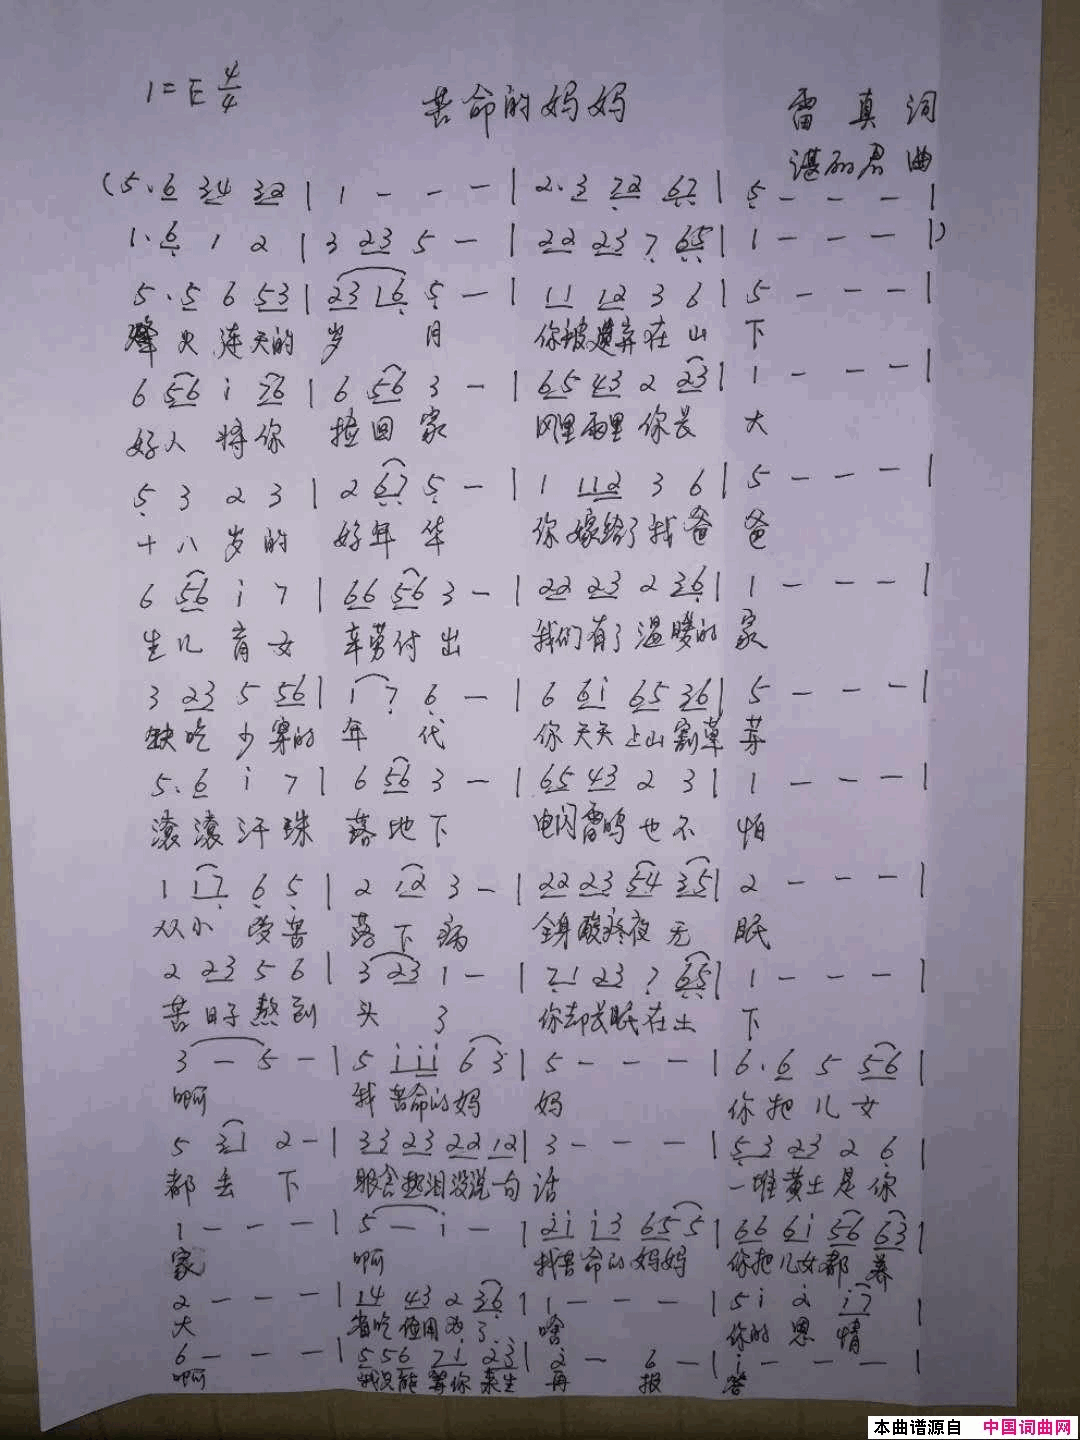 1=E 4/4
苦命的妈妈
雷真词
谌丽君曲
(5.6 34 32 | 1 - - - | 2.3 72 67 | 5 - - - |
1.6 1 2 | 3 23 5 - | 22 23 7 65 | 1 - - - |)
5.5 6 53 | 23 16 5 - | 11 12 3 6 | 5 - - - |
烽火连天的岁月 你被遗弃在山下
6 56 i 76 | 6 56 3 - | 65 43 2 23 | 1 - - - |
好人将你捡回家 风里雨里你长大
5 3 2 3 | 2 67 5 - | 1 112 3 6 | 5 - - - |
十八岁的好年华 你嫁给了我爸爸
6 56 i 7 | 66 56 3 - | 22 23 2 36 | 1 - - - |
生儿育女辛劳付出 我们有了温暖的家
3 23 5 56 | 1 7 6 - | 6 6i 65 36 | 5 - - - |
缺吃少穿的年代 你天天上山割草芽
5.6 i 7 | 6 56 3 - | 65 43 2 3 | 1 - - - |
滚滚汗珠落地下 电闪雷鸣也不怕
1 17 6 5 | 2 12 3 - | 22 23 54 35 | 2 - - - |
从小受苦落下病 全身酸疼夜无眠
2 23 5 6 | 3 23 1 - | 71 23 7 65 | 1 - - - |
苦日子熬到头了 你却长眠在土下
3 - 5 - | 5 iii 6 3 | 5 - - - | 6.6 5 56 |
啊 我苦命的妈妈 你把儿女
5 31 2 - | 33 23 22 12 | 3 - - - | 53 23 2 6 |
都丢下 眼含热泪没说一句话 一堆黄土是你
1 - - - | 5 - i - | 2i i3 65 5 | 66 6i 56 63 |
家 啊 我苦命的妈妈 你把儿女都养
2 - - - | 14 43 2 36 | 1 - - - | 5 i 2 i7 |
大 省吃俭用为了啥 你的恩情
6 - - - | 5 56 71 23 | 2 - 6 - | i - - - |
啊 我只能等你来生再报答
本曲谱源自 中国词曲网